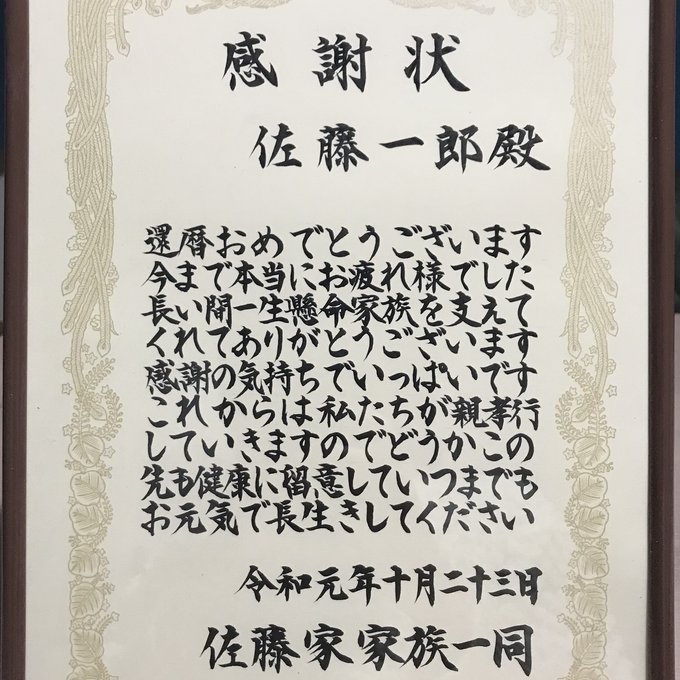 感謝状
佐藤一郎殿
還暦おめでとうございます
今まで本当にお疲れ様でした
長い間一生懸命家族を支えて
くれてありがとうございます
感謝の気持ちでいっぱいです
これからは私たちが親孝行
していきますのでどうかこの
先も健康に留意していつまでも
お元気で長生きしてください
令和元年十月二十三日
佐藤家家族一同